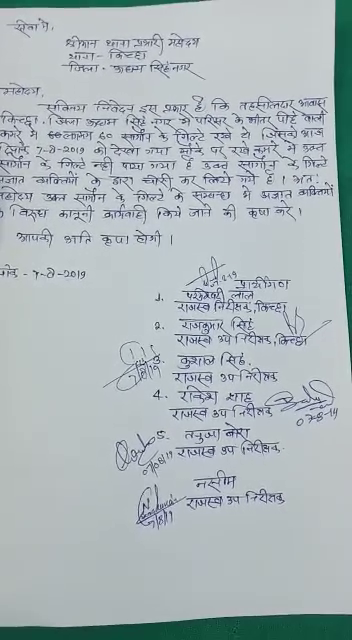 सेवा में,
श्रीमान थाना प्रभारी महोदय
थाना- किच्छा
जिला- ऊधम सिंह नगर
महोदय,
सविनय निवेदन इस प्रकार है कि तहसीलदार आवास
किच्छा, जिला ऊधम सिंह नगर के परिसर के भीतर पीछे वाले
कमरे में लगभग 60 सागौन के गिल्टे रखे थे जिसको आज
दिनांक 7-8-2019 को देखा गया मौके पर रखे कमरे में उक्त
सागौन के गिल्टे नहीं पाये गये है उक्त सागौन के गिल्टे
अज्ञात व्यक्तियों के द्वारा चोरी कर लिये गये है। अतः
महोदय उक्त सागौन के गिल्टे के सम्बन्ध में अज्ञात व्यक्तियों
के विरुध कानूनी कार्यवाही किये जाने की कृपा करें।
आपकी अति कृपा होगी।
दिनांक - 7-8-2019
प्रार्थीगण
1. लाल
राजस्व निरीक्षक, किच्छा
2. राजकुमार सिंह
राजस्व उप निरीक्षक, किच्छा
कुशाल सिंह
7/8/19 राजस्व उप निरीक्षक
4. राकेश शाह
राजस्व उप निरीक्षक
07-8-19
5. बोरा
07/08/19 राजस्व उप निरीक्षक
नसीम
राजस्व उप निरीक्षक
7/8/19